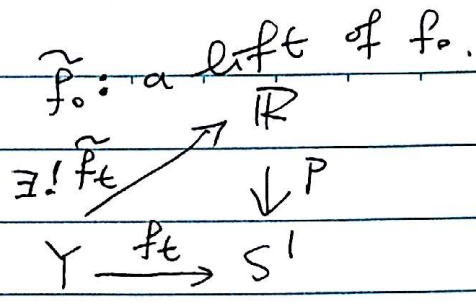 f̃₀: a lift of f₀.
ℝ
∃! f̃t
↓ P
Y —ft→ S¹